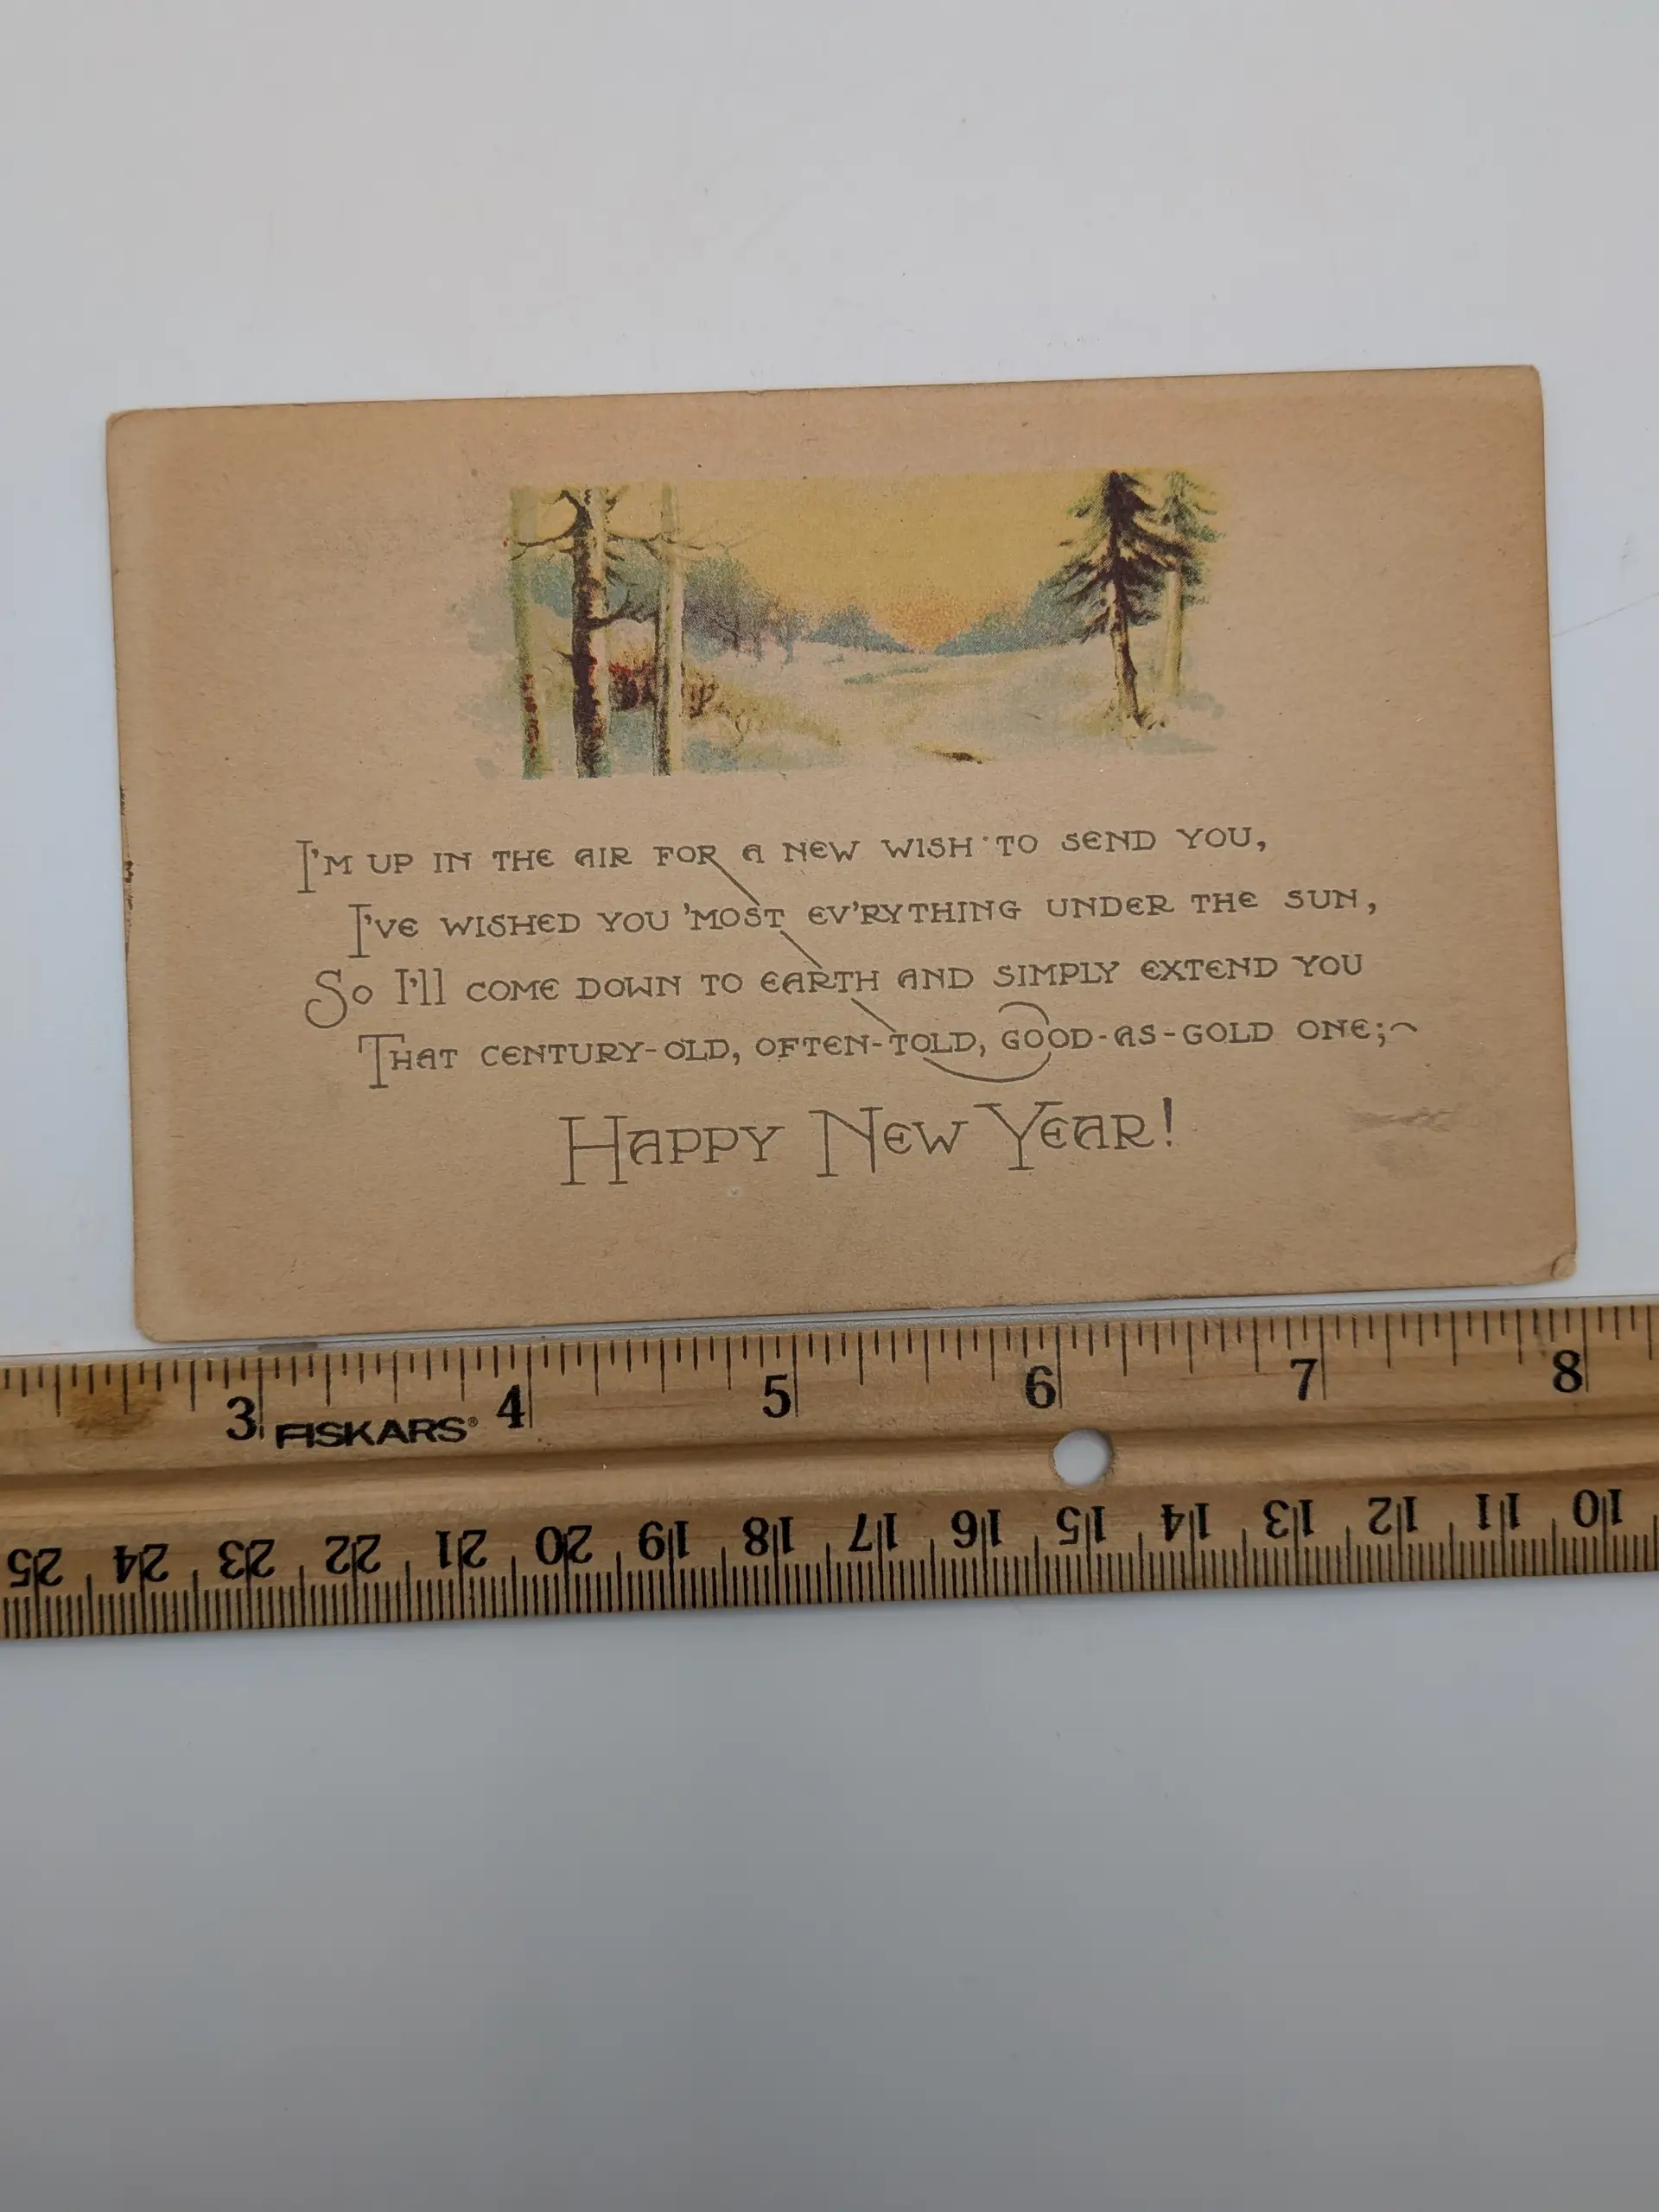 I'M UP IN THE AIR FOR A NEW WISH TO SEND YOU,
I'VE WISHED YOU 'MOST EV'RYTHING UNDER THE SUN,
SO I'll COME DOWN TO EARTH AND SIMPLY EXTEND YOU
THAT CENTURY-OLD, OFTEN-TOLD, GOOD-AS-GOLD ONE;~
HAPPY NEW YEAR!
3 4 5 6 7 8
FISKARS®
25 24 23 22 21 20 19 18 17 16 15 14 13 12 11 10